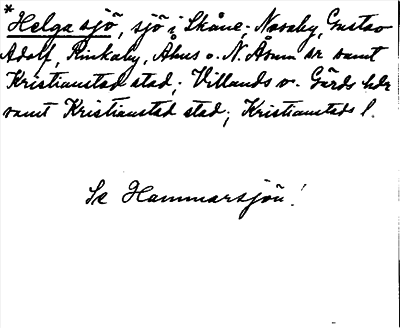 * Helga sjö, sjö i Skåne; Nosaby, Gustav
Adolf, Rinkaby, Åhus o. N. Åsum sr samt
Kristianstad stad; Villands o. Gärds hdr
samt Kristianstad stad; Kristianstads l.
Se Hammarsjön!